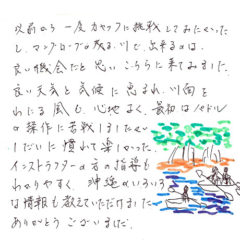 以前から一度カヤックに挑戦してみたいたい
し、マングローブの茂る川で出来るのは、
良い機会だと思いこちらに来てみました。
良い天気と気候に恵まれ、川面を
わたる風も心地よく、最初はパドル
の操作に苦戦しましたが
しだいに慣れて進しかった。
インストラクターの方の指導も
わかりやすく、沖縄のいろいろ
な情報も教えていただけました
ありがとうございました。